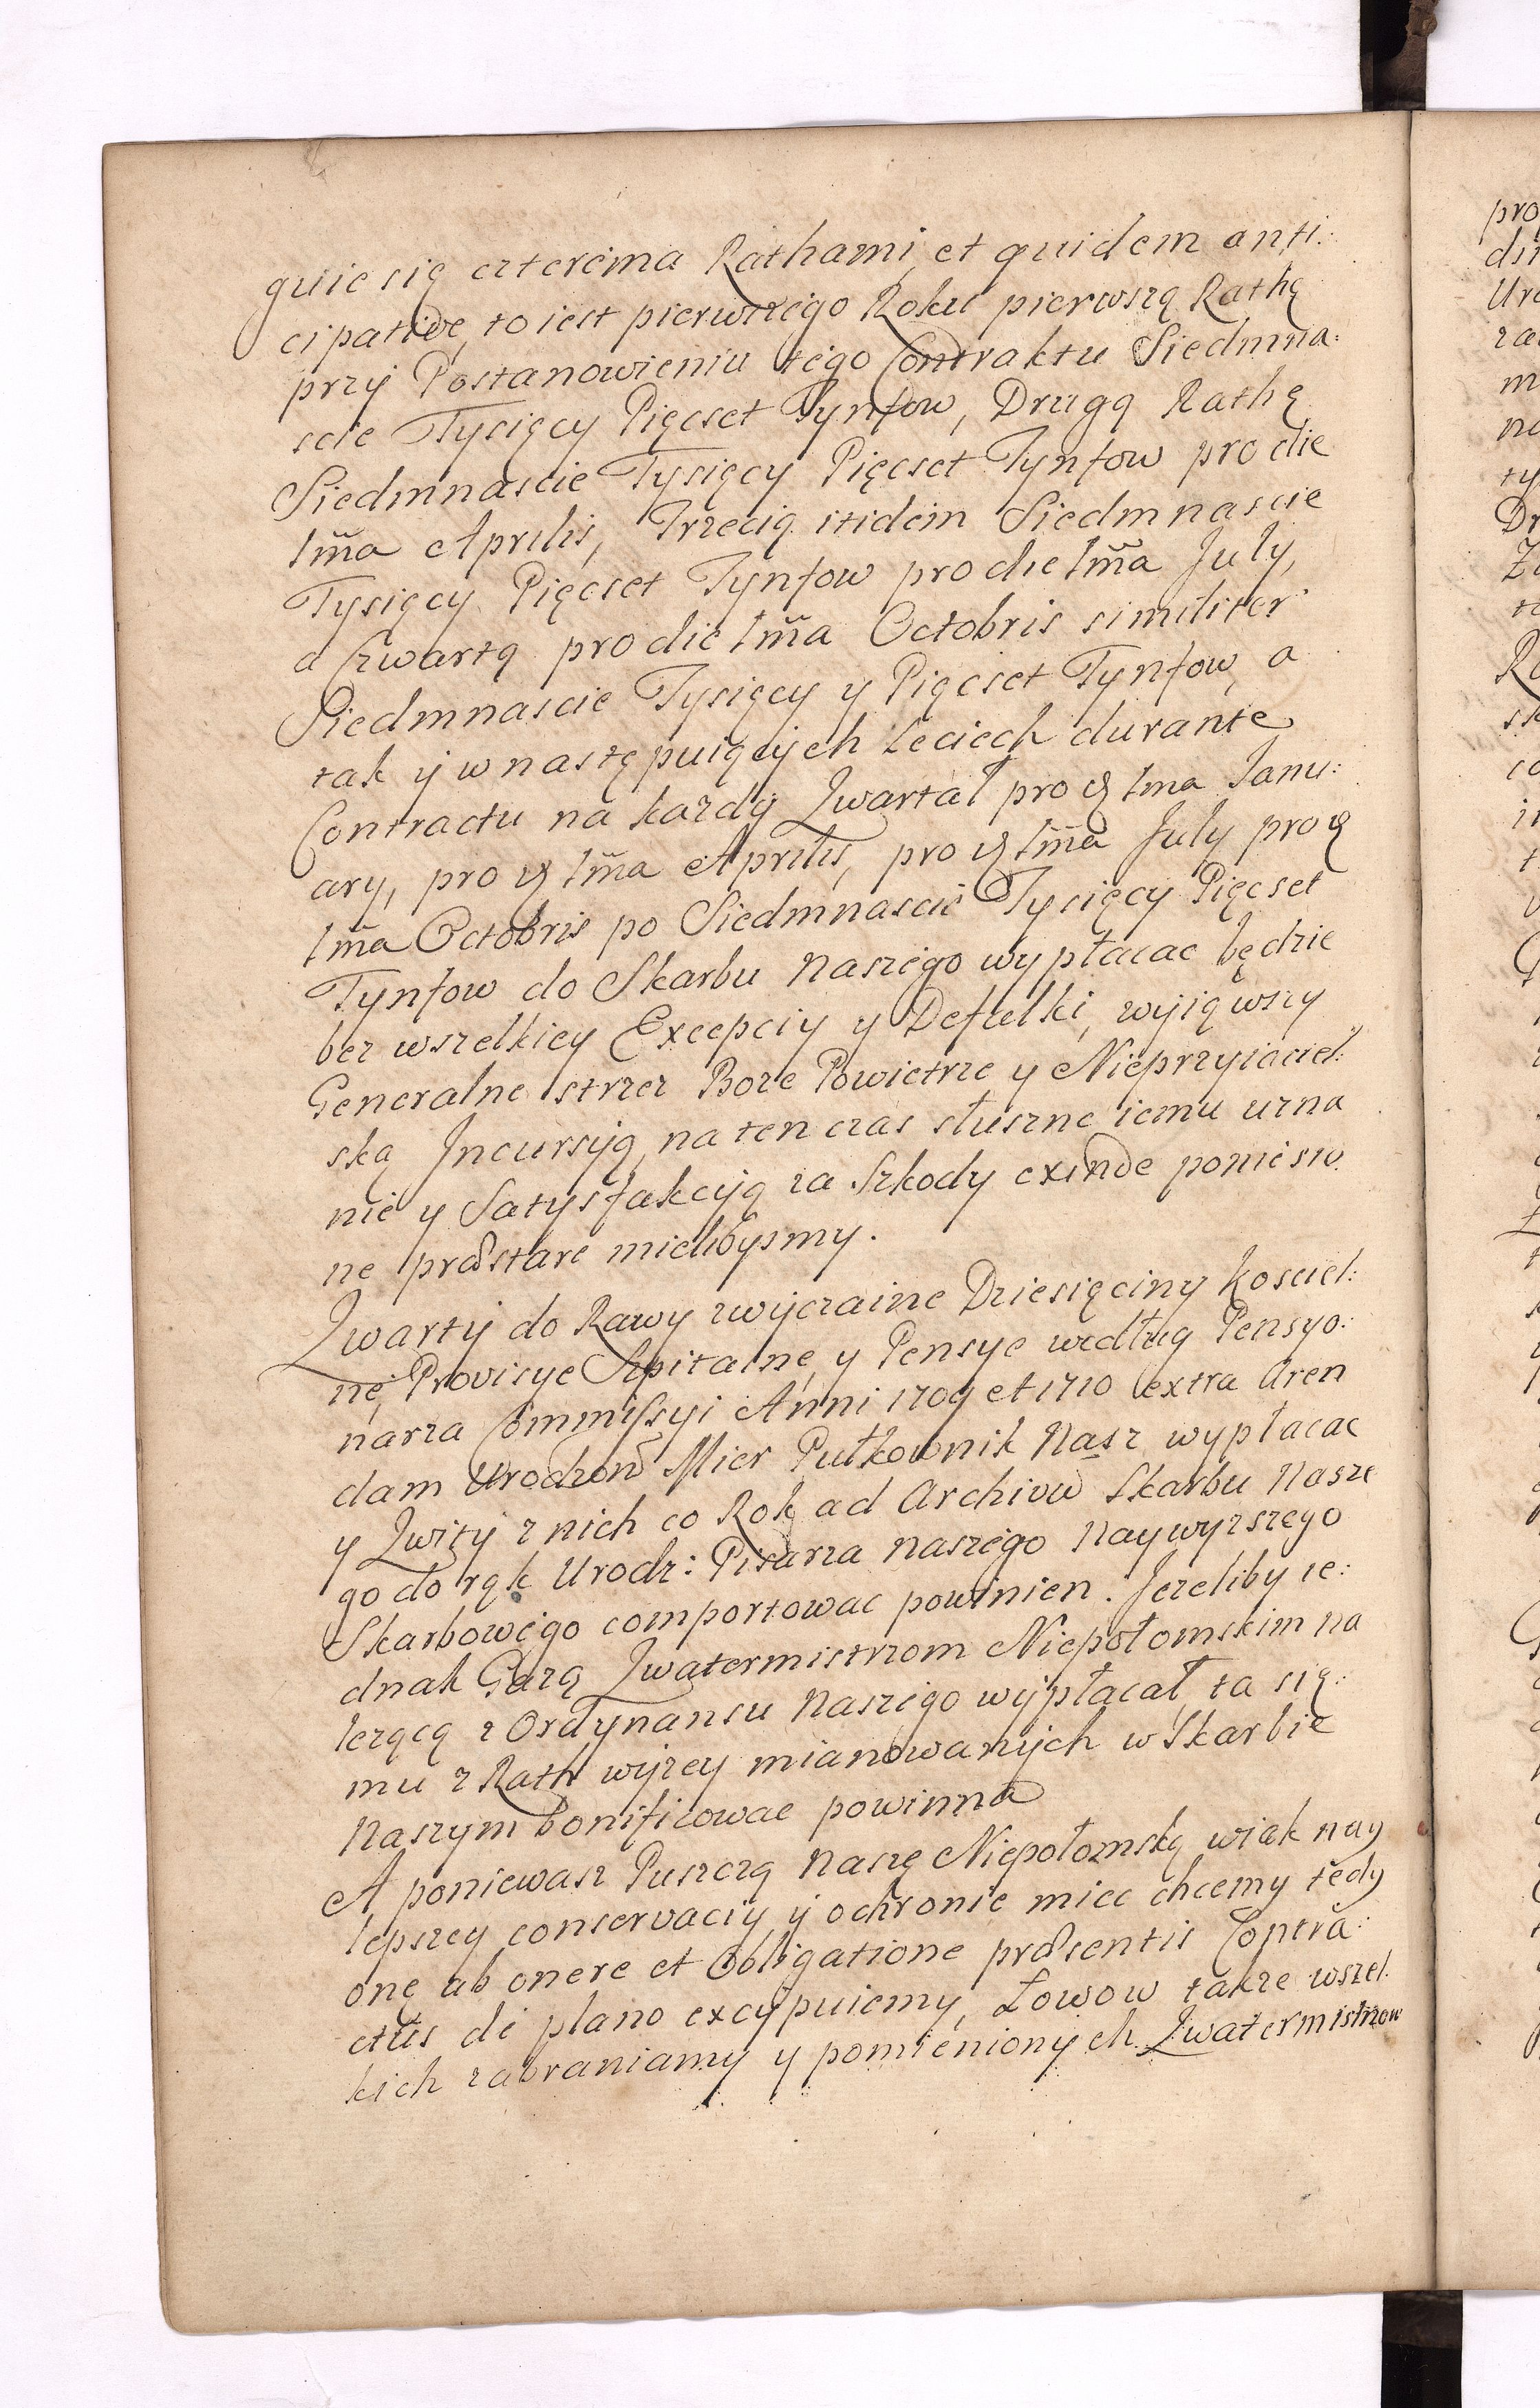 guie się czterema Rathami, et quidem anti:
cipative, to iest pierwszego Roku pierwszą Rathę
przy Postanowieniu tego Contraktu Siedmna:
scie Tysięcy Pięcset Tynfow, Drugą Rathę
Siedmnascie Tysięcy Pięcset Tynfow pro die
1ma Aprilis, Trzecią itidem Siedmnascie
Tysięcy Pięcset Tynfow pro die 1ma July,
a Czwartą pro die 1ma Octobris similiter
Siedmnascie Tysięcy y Pięcset Tynfow, a
tak y w następuiących Leciech durante
Contractu na kazdy Qwartał pro 1ma Janu:
ary, pro 1ma Aprilis, pro 1ma July pro
1ma Octobris po Siedmnascie Tysięcy Pięcset
Tynfow do Skarbu Naszego wypłacac będzie
bez wszelkiey Excepciy y Defalki, wyiąwszy
Generalne strzez Boze Powietrze y Nieprzyiaciel:
ską Incursyą, na ten czas słuszne iemu uzna
nie y Satysfakcyą za Szkody exinde poniesio
ne præstare mielibysmy.
Qwarty do Rawy zwyczaine Dziesięciny Kosciel:
ne, Provisye Szpitalne, y Pensye według Pensyo:
narza Commissyi Anni 1709 et 1710 extra Aren
dam Urodzon Mier Pułkownik Nasz wypłacac
y Qwity z nich co Rok ad Archivu Skarbu Nasze
go do rąk Urodz: Pisarza Naszego Naywyzszego
Skarbowego comportowac powinien. Jezeliby ie:
dnak Gazą Qwatermistrzom Niepołomskim na
lezącą z Ordynansu Naszego wypłacał, ta się
mu z Rath wyzey mianowanych w Skarbie
Naszym bonificowac powinna
A poniewasz Puszczą Naszę Niepołomską w iak nay
lepszey conservaciy y ochronie miec chcemy tedy
onę ab onere et Obligatione præsentis Contra:
ctus de plano excypuiemy, Łowow takze wszel:
kich zabraniamy y pomienionych Qwatermistrzow